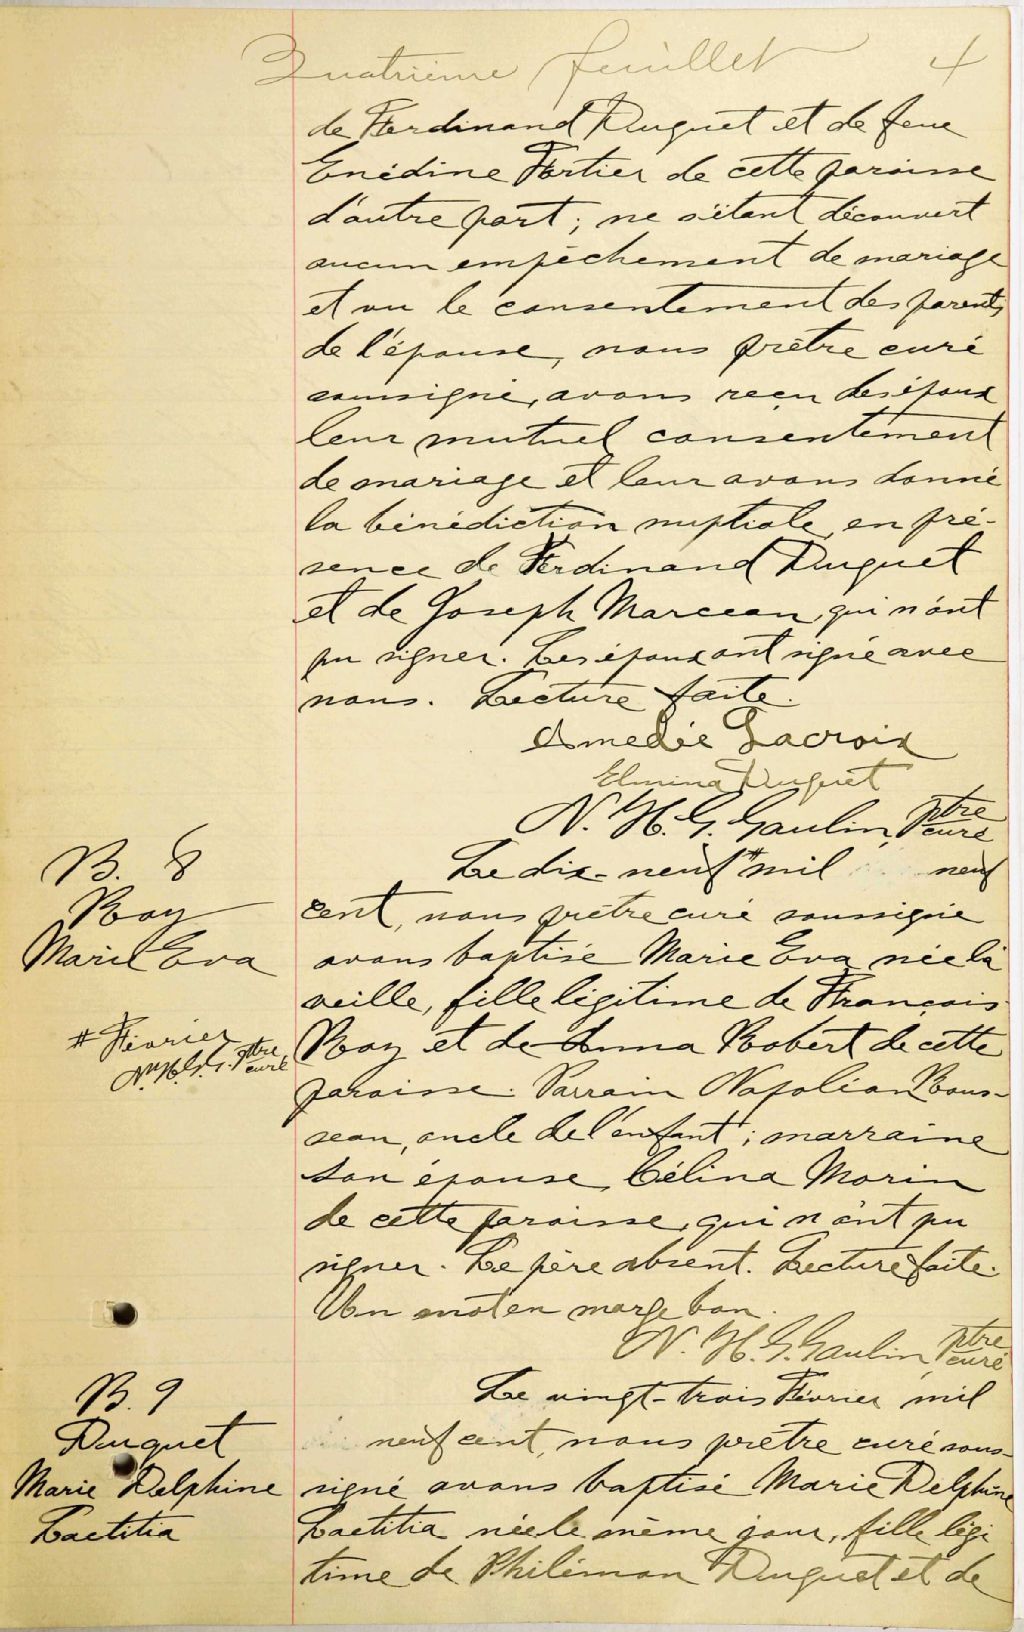 Quatrième feuillet 4
de Ferdinand Duquet et de feue
Enédine Fortier de cette paroisse
d'autre part; ne s'étant découvert
aucun empêchement de mariage
et vu le consentement des parents
de l'épouse, nous prêtre curé
soussigné, avons reçu des époux
leur mutuel consentement
de mariage et leur avons donné
la bénédiction nuptiale en pré-
sence de Ferdinand Duquet
et de Joseph Marceau, qui n'ont
pu signer. Les époux ont signé avec
nous. Lecture faite.
Amedée Lacroix
Elmina Duquet
N. H. G. Gaulin, ptre curé
B. 8
Roy
Marie Eva
Le dix-neuf # mil neuf
cent, nous prêtre curé soussigné
avons baptisé Marie Eva née la
veille, fille légitime de François
Roy et de Anna Robert de cette
paroisse. Parrain Napoléon Rous-
seau, oncle de l'enfant; marraine
son épouse, Célina Morin
de cette paroisse, qui n'ont pu
signer. Le père absent. Lecture faite.
Un mot en marge bon.
# Février
N. H. G. G. Ptre curé
N. H. G. Gaulin, ptre curé
B. 9
Duquet
Marie Delphine
Laetitia
Le vingt-trois Février mil
neuf cent, nous prêtre curé sous-
signé avons baptisé Marie Delphine
Laetitia née le même jour, fille légi
time de Philémon Duquet et de